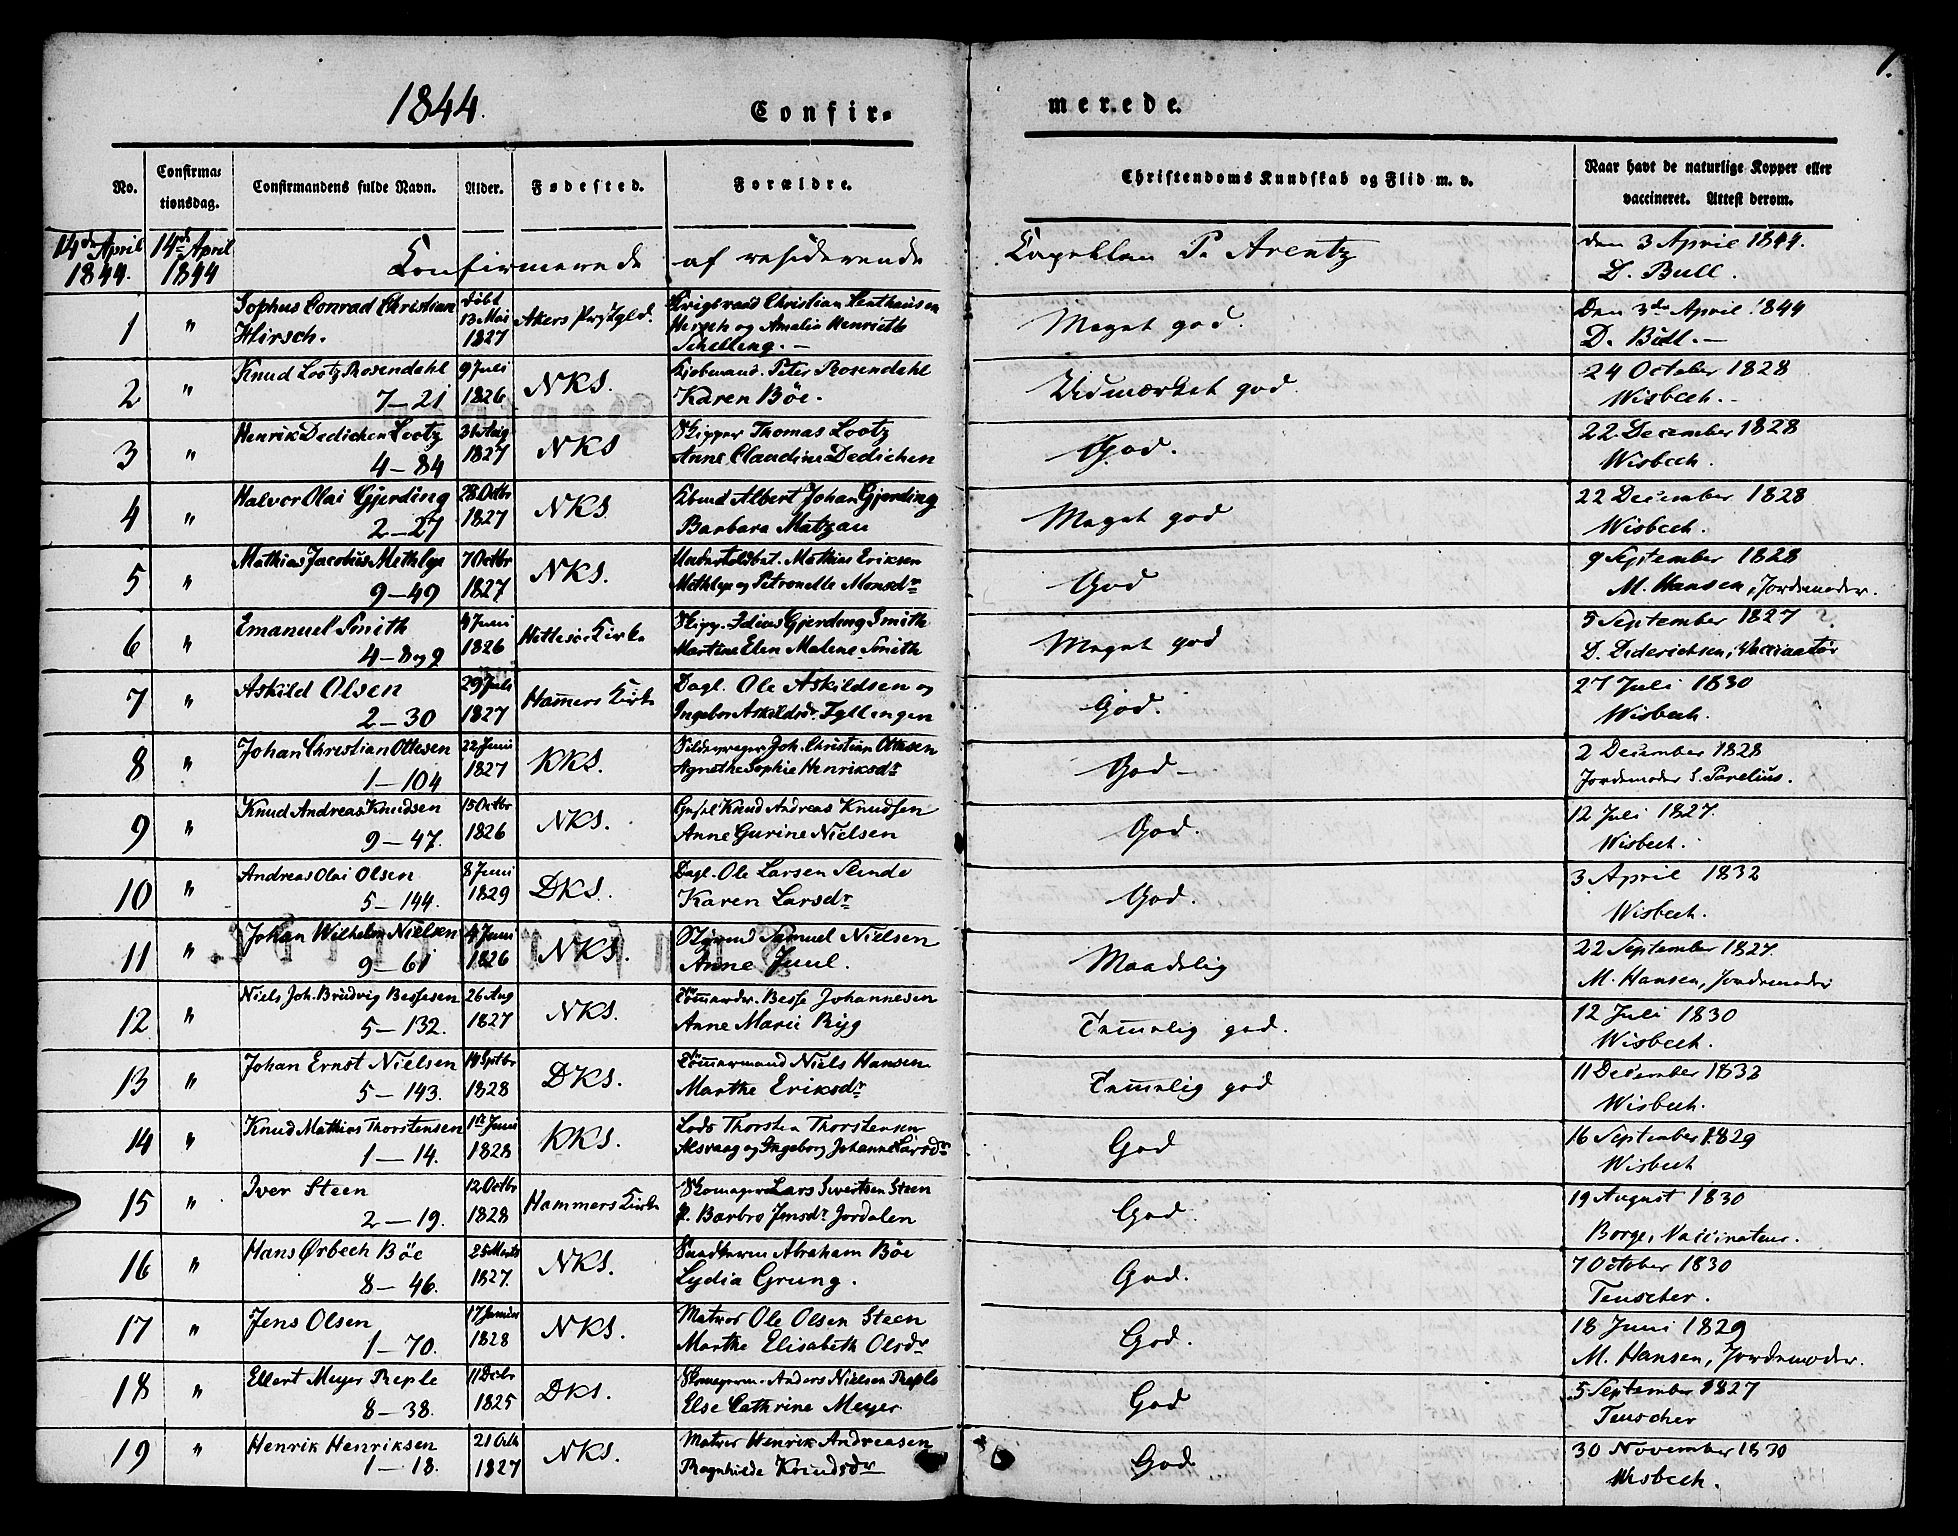 1844. Confir- merede. 1.
No. Confirma-tionsdag. Confirmandens fulde Navn. Alder. Fødested. Forældre. Christendoms Kundskab og Flid m. v. Naar havt de naturlige Kopper eller vaccineret. Attest derom.
14de April 1844. 14de April 1844 Confirmerede af residerende Capellan P. Arentz den 3 April 1844. D. Bull.
1 " Sophus Conrad Christian døbt Krigsraad Christian
Hirsch. 13 Mai 1827 Akers Prstgld. Hirsch og Amalia Henriette Schelling. — Meget god. Den 3de April 1844 D. Bull. —
2 " Knud Lootz Rosendahl 9 Juli Kjøbmand. Peter Rosendahl 24 October 1828
7–21 1826 NKS. Karen Böe. Udmærket god. Wisbech. —
3 " Henrik Dedichen Lootz 31 Aug Skipper Thomas Lootz 22 December 1828
4–84 1827 NKS Anne Claudine Dedichen God. Wisbech.
4 " Halvor Olai Gjerding 28 Octbr Kbmd Albert Johan Gjerding 22 December 1828
2–27 1827 NKS Barbara Matzau Meget god Wisbech.
5 " Mathias Jacobus Methlye 7 Octbr Mathias Eriksen 9 September 1828
9–49 1827 NKS. Methlye og Petronelle Monsdr God M. Hansen, Jordemoder.
6 " Emanuel Smith 4 Juni Skipp. Gjerding Smith 5 September 1827
4–8 og 9 1826 Hittesøe Kirke Martine Elen Malene Smith Meget god D. Diderichsen, Vaccinatør
7 " Askild Olsen 29 Juli Dagl. Ole Askildsen og 27 Juli 1830
2–30 1827 Hamers Kirke Ingebor Askildsdr. Fyllingen God. Wisbech.
8 " Johan Christian Ottesen 22 Juni Joh. Christian Ottesen 2 December 1828
1–104 1827 KKS. Agnethe Sophie Henriksdr God — Jordemoder S. Parelius.
9 " Knud Andreas Knudsen 15 Octbr Knud Andreas Knudsen 12 Juli 1827.
9–47. 1826 NKS. Anne Gurine Nielsen God. Wisbech.
10 " Andreas Olai Olsen 8 Juni Dagl. Ole Larsen Slinde 3 April 1832
5–144. 1829 DKS. Karen Larsdr God. Wisbech.
11 " Johan Wilhelm Nielsen 4 Juni Samuel Nielsen 22 September 1827.
9–61 1826 NKS. Anne Juul. Maadelig M. Hansen, Jordemoder
12 " Niels Joh. Brudvig Bessesen 26 Aug Besse Johannesen 12 Juli 1830
5–132. 1827 NKS. Anne Marie Ryg Temmelig god. Wisbech.
13 " Johan Ernst Nielsen Septbr Tömmermand Niels Hansen 11 December 1832
5–143. 1828 DKS. Marthe Eriksdr Temmelig god Wisbech.
14 " Knud Mathias Thorstensen 1te Juni Lods Thorsten Thorstensen 16 September 1829
1–14. 1828 KKS. Alsvaag og Ingeborg Johanne Larsdr God Wisbech
15 " Iver Steen 12 Octbr Skomager Lars Sivertsen Steen 19 August 1830
2–19. 1828 Hammers Kirke Barbro Jensdr Jordalen God. Borge, Vaccinateur.
16 " Hans Ørbech Böe 25 Marts Abraham Böe 7 October 1830
8–46. 1827. NKS. Lydia Grung. God. Teuscher.
17 " Jens Olsen 17 Januar Matros Ole Olsen Steen 18 Juni 1829
1–70. 1828 NKS. Marthe Elisabeth Olsdr God. M. Hansen, Jordemoder.
18 " Ellert Meyer Reple 11 Decbr Skomagerm. Anders Nielsen Reple 5 September 1827
8–38. 1825 DKS. Else Cathrine Meyer God Teuscher
19 " Henrik Henriksen 21 Octb Matros Henrik Andreasen 30 November 1830
1–18. 1827 NKS. Ragnhilde Knudsdr God. Wisbech.